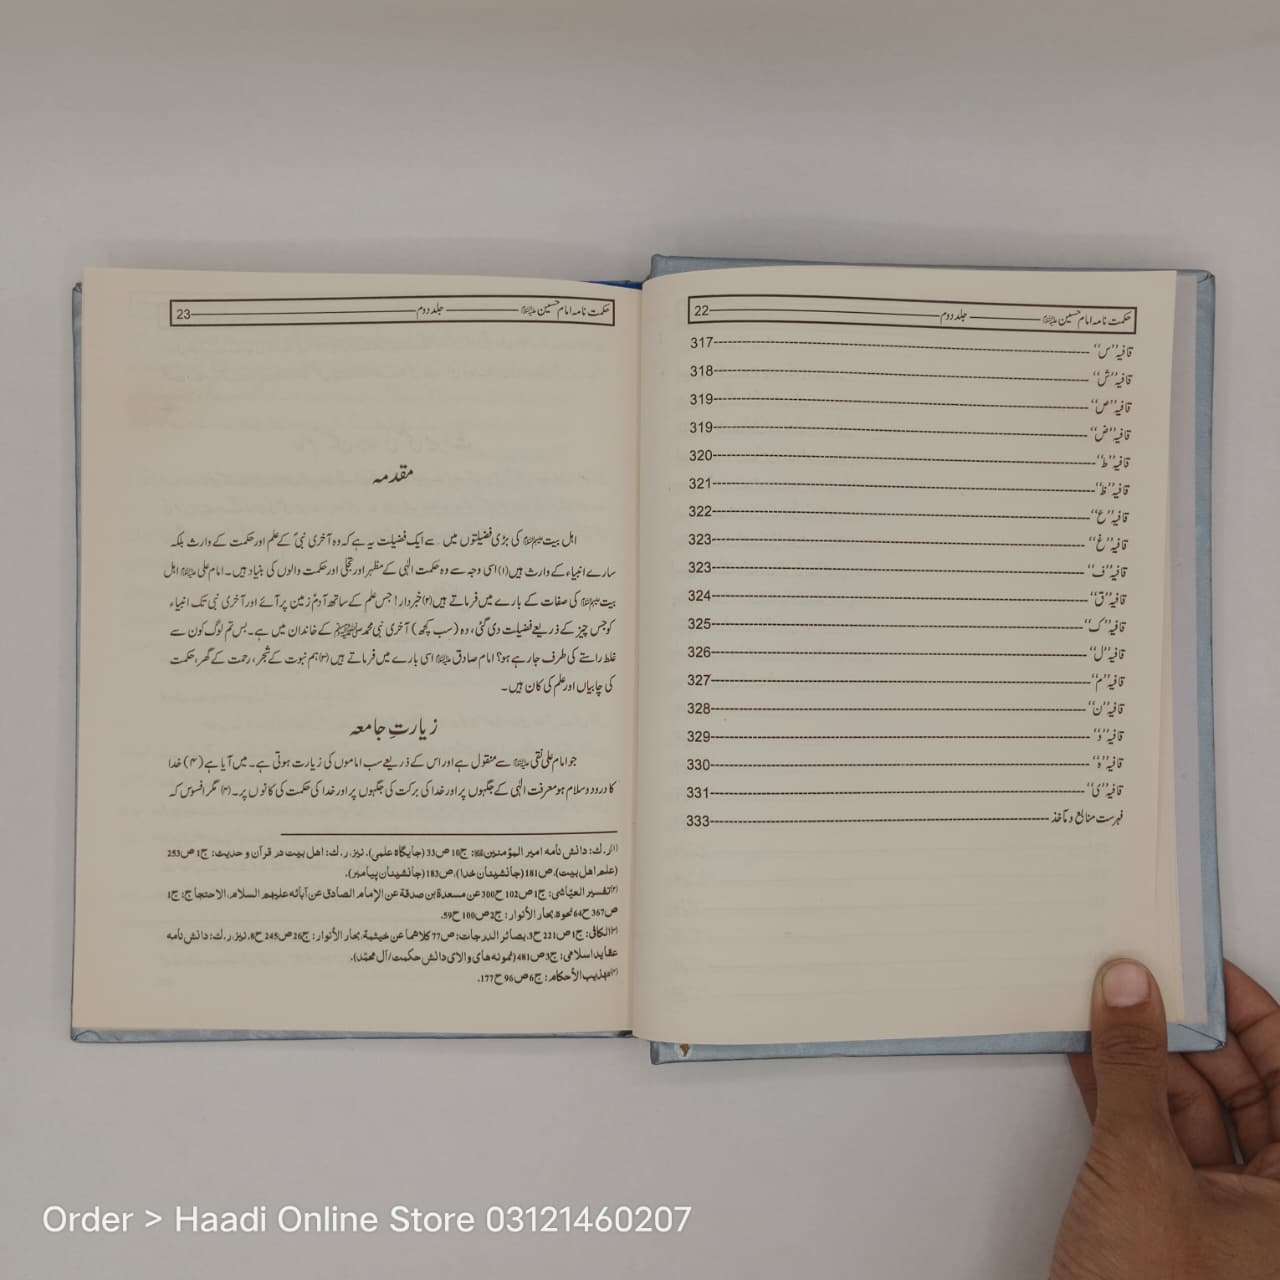 حکمت نامہ امام حسین علیہ السلام جلد دوم 22
قافیہ ''س'' 317
قافیہ ''ش'' 318
قافیہ ''ص'' 319
قافیہ ''ض'' 319
قافیہ ''ط'' 320
قافیہ ''ظ'' 321
قافیہ ''ع'' 322
قافیہ ''غ'' 323
قافیہ ''ف'' 323
قافیہ ''ق'' 324
قافیہ ''ک'' 325
قافیہ ''ل'' 326
قافیہ ''م'' 327
قافیہ ''ن'' 328
قافیہ ''و'' 329
قافیہ ''ہ'' 330
قافیہ ''ی'' 331
فہرست منابع و مآخذ 333
حکمت نامہ امام حسین علیہ السلام جلد دوم 23
مقدمہ
اہل بیت علیہم السلام کی بڑی فضیلتوں میں سے ایک فضیلت یہ ہے کہ وہ آخری نبیؐ کے علم اور حکمت کے وارث بلکہ
سارے انبیاء کے وارث ہیں (۱) اسی وجہ سے وہ حکمت الٰہی کے مظہر اور تجلی اور حکمت والوں کی بنیاد ہیں۔ امام علی علیہ السلام اہل
بیت علیہم السلام کی صفات کے بارے میں فرماتے ہیں (۲) خبردار! جس علم کے ساتھ آدمؑ زمین پر آئے اور آخری نبی تک انبیاء
کو جس چیز کے ذریعے فضیلت دی گئی، وہ (سب کچھ) آخری نبی محمد صلی اللہ علیہ وآلہ وسلم کے خاندان میں ہے۔ بس تم لوگ کون سے
غلط راستے کی طرف جا رہے ہو؟ امام صادق علیہ السلام اسی بارے میں فرماتے ہیں (۳) ہم نبوت کے شجر، رحمت کے گھر، حکمت
کی چابیاں اور علم کی کان ہیں۔
زیارتِ جامعہ
جو امام علی نقی علیہ السلام سے منقول ہے اور اس کے ذریعے سب اماموں کی زیارت ہوتی ہے۔ میں آیا ہے (۴) خدا
کا درود و سلام ہو معرفت الٰہی کے جگہوں پر اور خدا کی برکت کی جگہوں پر اور خدا کی حکمت کی کانوں پر۔ (۴) مگر افسوس کہ
(۱) ر.ک: دانش نامہ امیر المؤمنین: ج10 ص33 (جایگاہ علمی)، نیز، ر.ک: اهل بیت در قرآن و حدیث: ج1 ص253
(علم اهل بیت)، ص181 (جانشینان خدا)، ص183 (جانشینان پیامبر).
(۲) تفسیر العیّاشی: ج1 ص102 ح300 عن مسعدة بن صدقة عن الإمام الصادق عن آبائه علیهم السلام، الاحتجاج: ج1
ص367 ح64 نحوه، بحار الأنوار: ج2 ص100 ح59.
(۳) الکافی: ج1 ص221 ح3، بصائر الدرجات: ص77 کلاهما عن خیثمة، بحار الأنوار: ج26 ص245 ح8، نیز، ر.ک: دانش نامه
عقاید اسلامی: ج3 ص481 (نمونه های والای دانش حکمت / آل محمّد).
(۴) تهذیب الأحکام: ج6 ص96 ح177.
Order > Haadi Online Store 03121460207